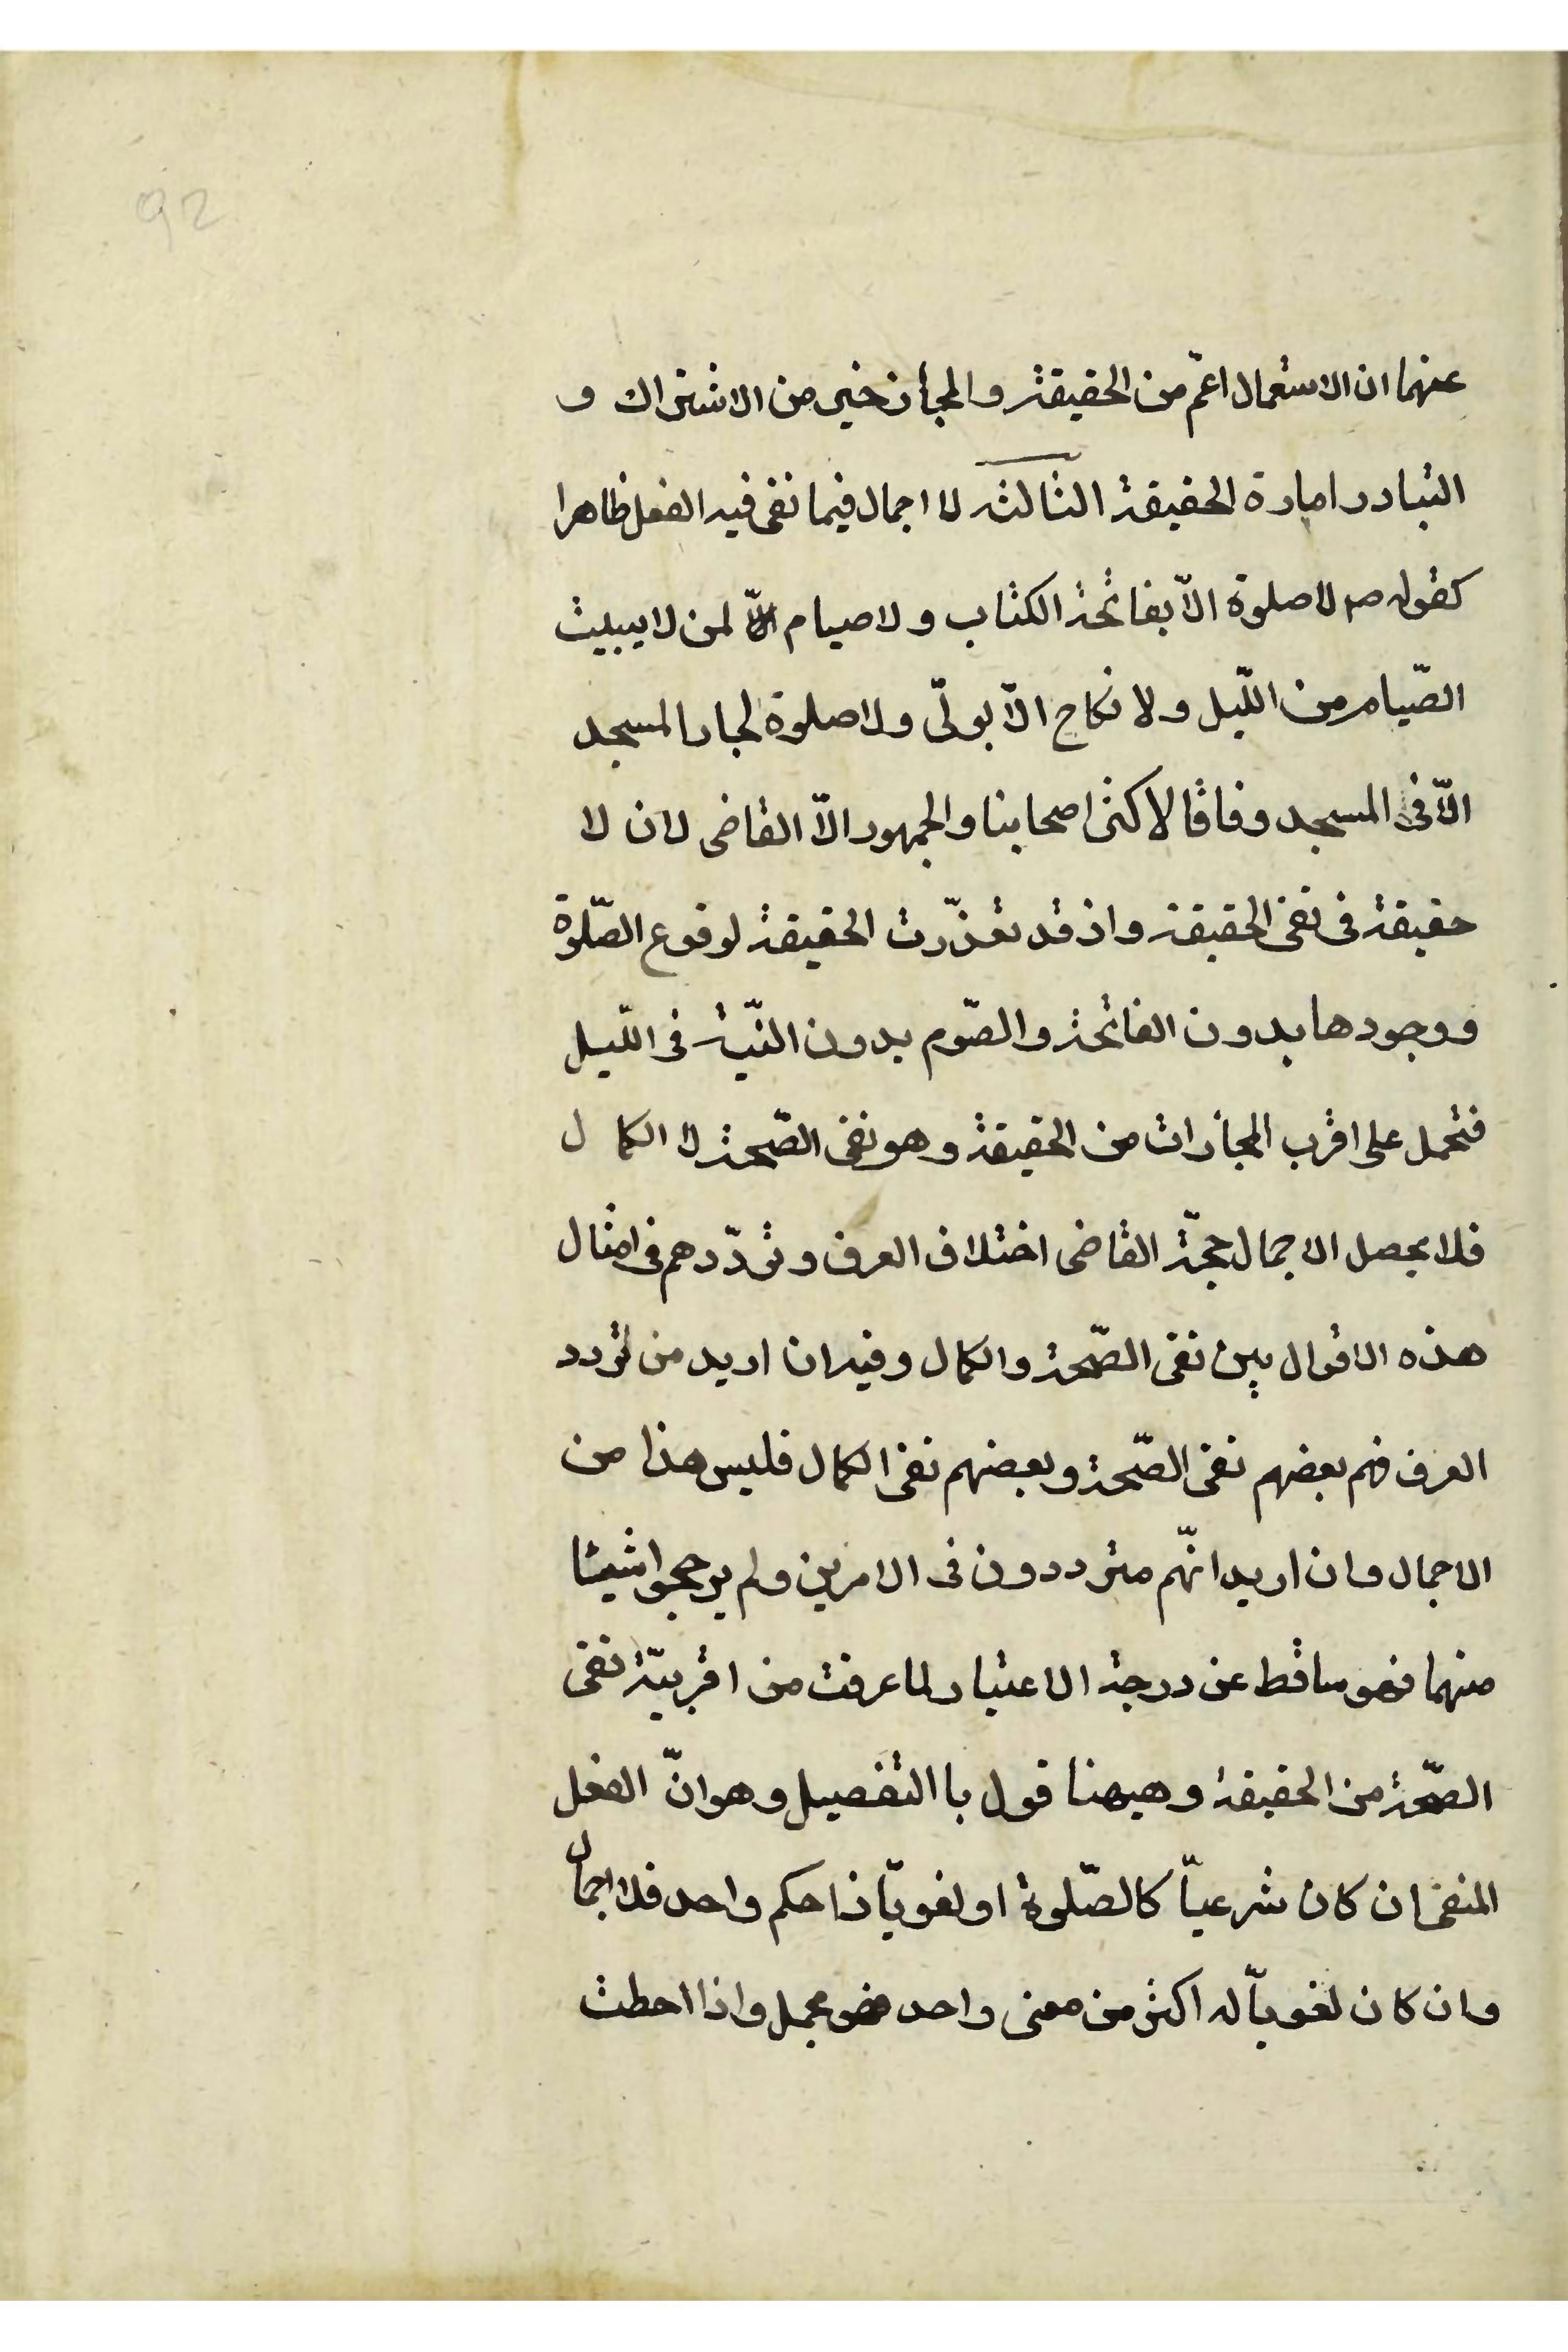 92
عنهما ان الاستعمال اعمّ من الحقيقة والمجاز خير من الاشتراك و
التبادر امارة الحقيقة الثالثه لا اجمال فيما نفى فيه الفعل ظاهرا
كقوله صم لا صلوة الّا بفاتحة الكتاب ولا صيام لمن لا يبيت
الصّيام من اللّيل ولا نكاح الّا بولّى ولا صلوة لجار المسجد
الّا فى المسجد وفاقا لاكثر اصحابنا والجمهور الّا القاضى لان لا
حقيقة فى نفى الحقيقة واذ قد تعذّرت الحقيقة لوقوع الصّلوة
ووجودها بدون الفاتحة والصّوم بدون النّية فى اللّيل
فتحمل على اقرب المجازات من الحقيقة وهو نفى الصّحة لا الكمال
فلا يحصل الاجمال حجّة القاضى اختلاف العرف وتردّدهم فى امثال
هذه الاقوال بين نفى الصّحة والكمال وفيه ان اريد من تردد
العرف فهم بعضهم نفى الصّحة وبعضهم نفى الكمال فليس هذا من
الاجمال وان اريد انّهم مترددون فى الامرين ولم يرجحوا شيئا
منهما فهو ساقط عن درجة الاعتبار لما عرفت من اقربيّة نفى
الصّحة من الحقيقة وهيهنا قول با التفصيل وهو انّ الفعل
المنفى ان كان شرعيّا كالصّلوة او لغويّا ذا حكم واحد فلا اجمال
وان كان لغويّا له اكثر من معنى واحد فهو مجمل واذا احطت